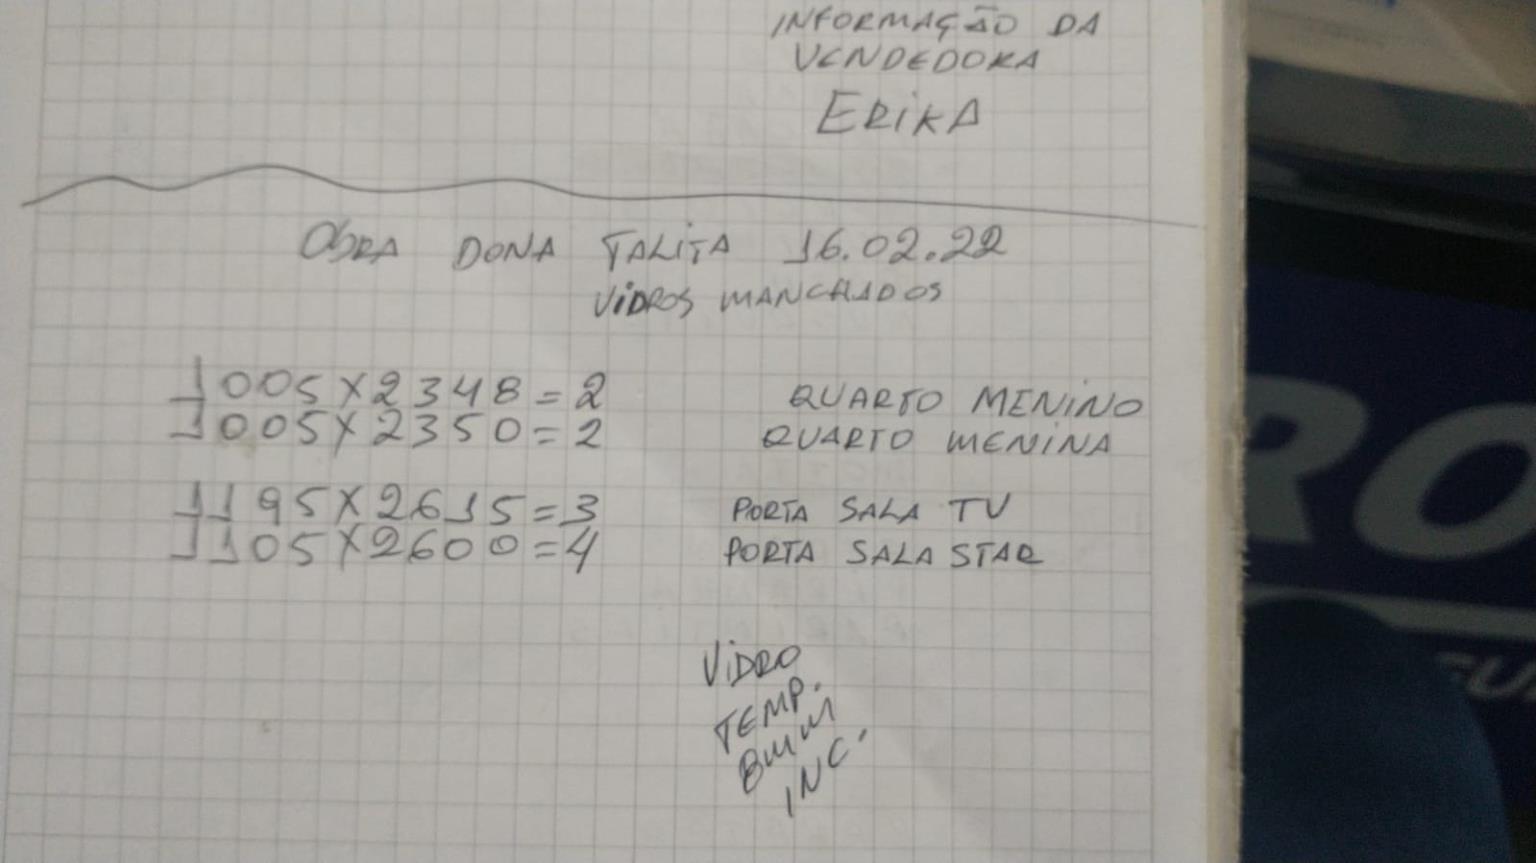 INFORMAÇÃO DA
VENDEDORA
ERIKA
OBRA DONA TALITA 16.02.22
VIDROS MANCHADOS
1005X2348=2 QUARTO MENINO
1005X2350=2 QUARTO MENINA
1195X2615=3 PORTA SALA TV
1105X2600=4 PORTA SALA STAR
VIDRO
TEMP.
8MM
INC.
RO